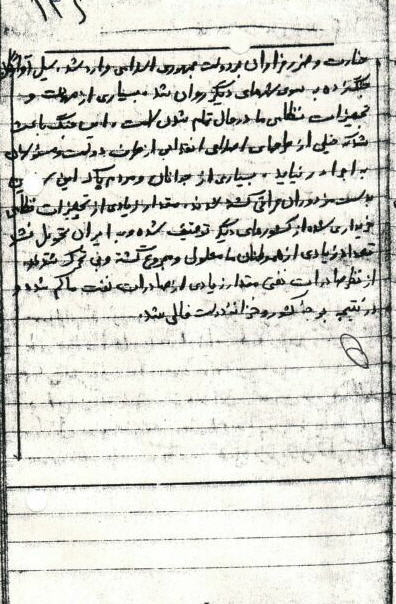 ۱۳۶
خسارت و ضرر فراوان به دولت جمهوری اسلامی وارد شد. سیل آوارگان
جنگ زده به سوی شهرهای دیگر روان شد. بسیاری از مهمات و
تجهیزات نظامی ما در حال تمام شدن است و این جنگ باعث
شد که خیلی از طرحهای اصلاحی انقلابی از طرف دولت و مسئولان
به اجرا در نیاید. بسیاری از جوانان و مردم پاک این
بدست مزدوران عراقی کشته شدند. مقدار زیادی از تجهیزات نظامی
خریداری شده از کشورهای دیگر توقیف شده و به ایران تحویل نشد
تعداد زیادی از هموطنان ما معلول و مجروح گشته و بی تحرک شدند.
از نظر صادرات نفتی مقدار زیادی از صادرات نفت ما کم شده و
در نتیجه کشور و خزانه دولت خالی شد.